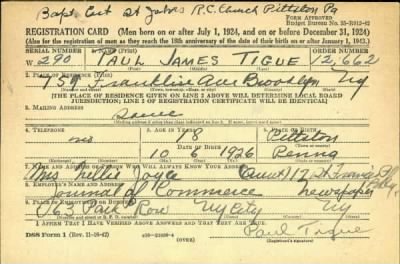 Bapt. Cert St Johns R.C. Church Pittston Pa
FORM APPROVED
Budget Bureau No. 33-R012-42
REGISTRATION CARD—(Men born on or after July 1, 1924, and on or before December 31, 1924)
(Also for the registration of men as they reach the 18th anniversary of the date of their birth on or after January 1, 1925.)
SERIAL NUMBER 1. NAME (Print) ORDER NUMBER
W 290 PAUL JAMES TIGUE 12,662
2. PLACE OF RESIDENCE (Print)
Franklin Ave Brooklyn Ny
[THE PLACE OF RESIDENCE GIVEN ON LINE 2 ABOVE WILL DETERMINE LOCAL BOARD
JURISDICTION; LINE 2 OF REGISTRATION CERTIFICATE WILL BE IDENTICAL]
3. MAILING ADDRESS
Same
4. TELEPHONE 5. AGE IN YEARS 6. PLACE OF BIRTH
no 18 Pittston
DATE OF BIRTH
10 6 1926 Penna
7. NAME AND ADDRESS OF PERSON WHO WILL ALWAYS KNOW YOUR ADDRESS
Mrs Nellie Joyce (aunt) 12 St Francis Pl Bklyn
8. EMPLOYER'S NAME AND ADDRESS
Journal of Commerce Newspaper
9. PLACE OF EMPLOYMENT OR BUSINESS
63 Park Row Ny City Ny
I AFFIRM THAT I HAVE VERIFIED ABOVE ANSWERS AND THAT THEY ARE TRUE.
Paul Tigue
DSS Form 1 (Rev. 11-16-42) (OVER) (Registrant's signature)